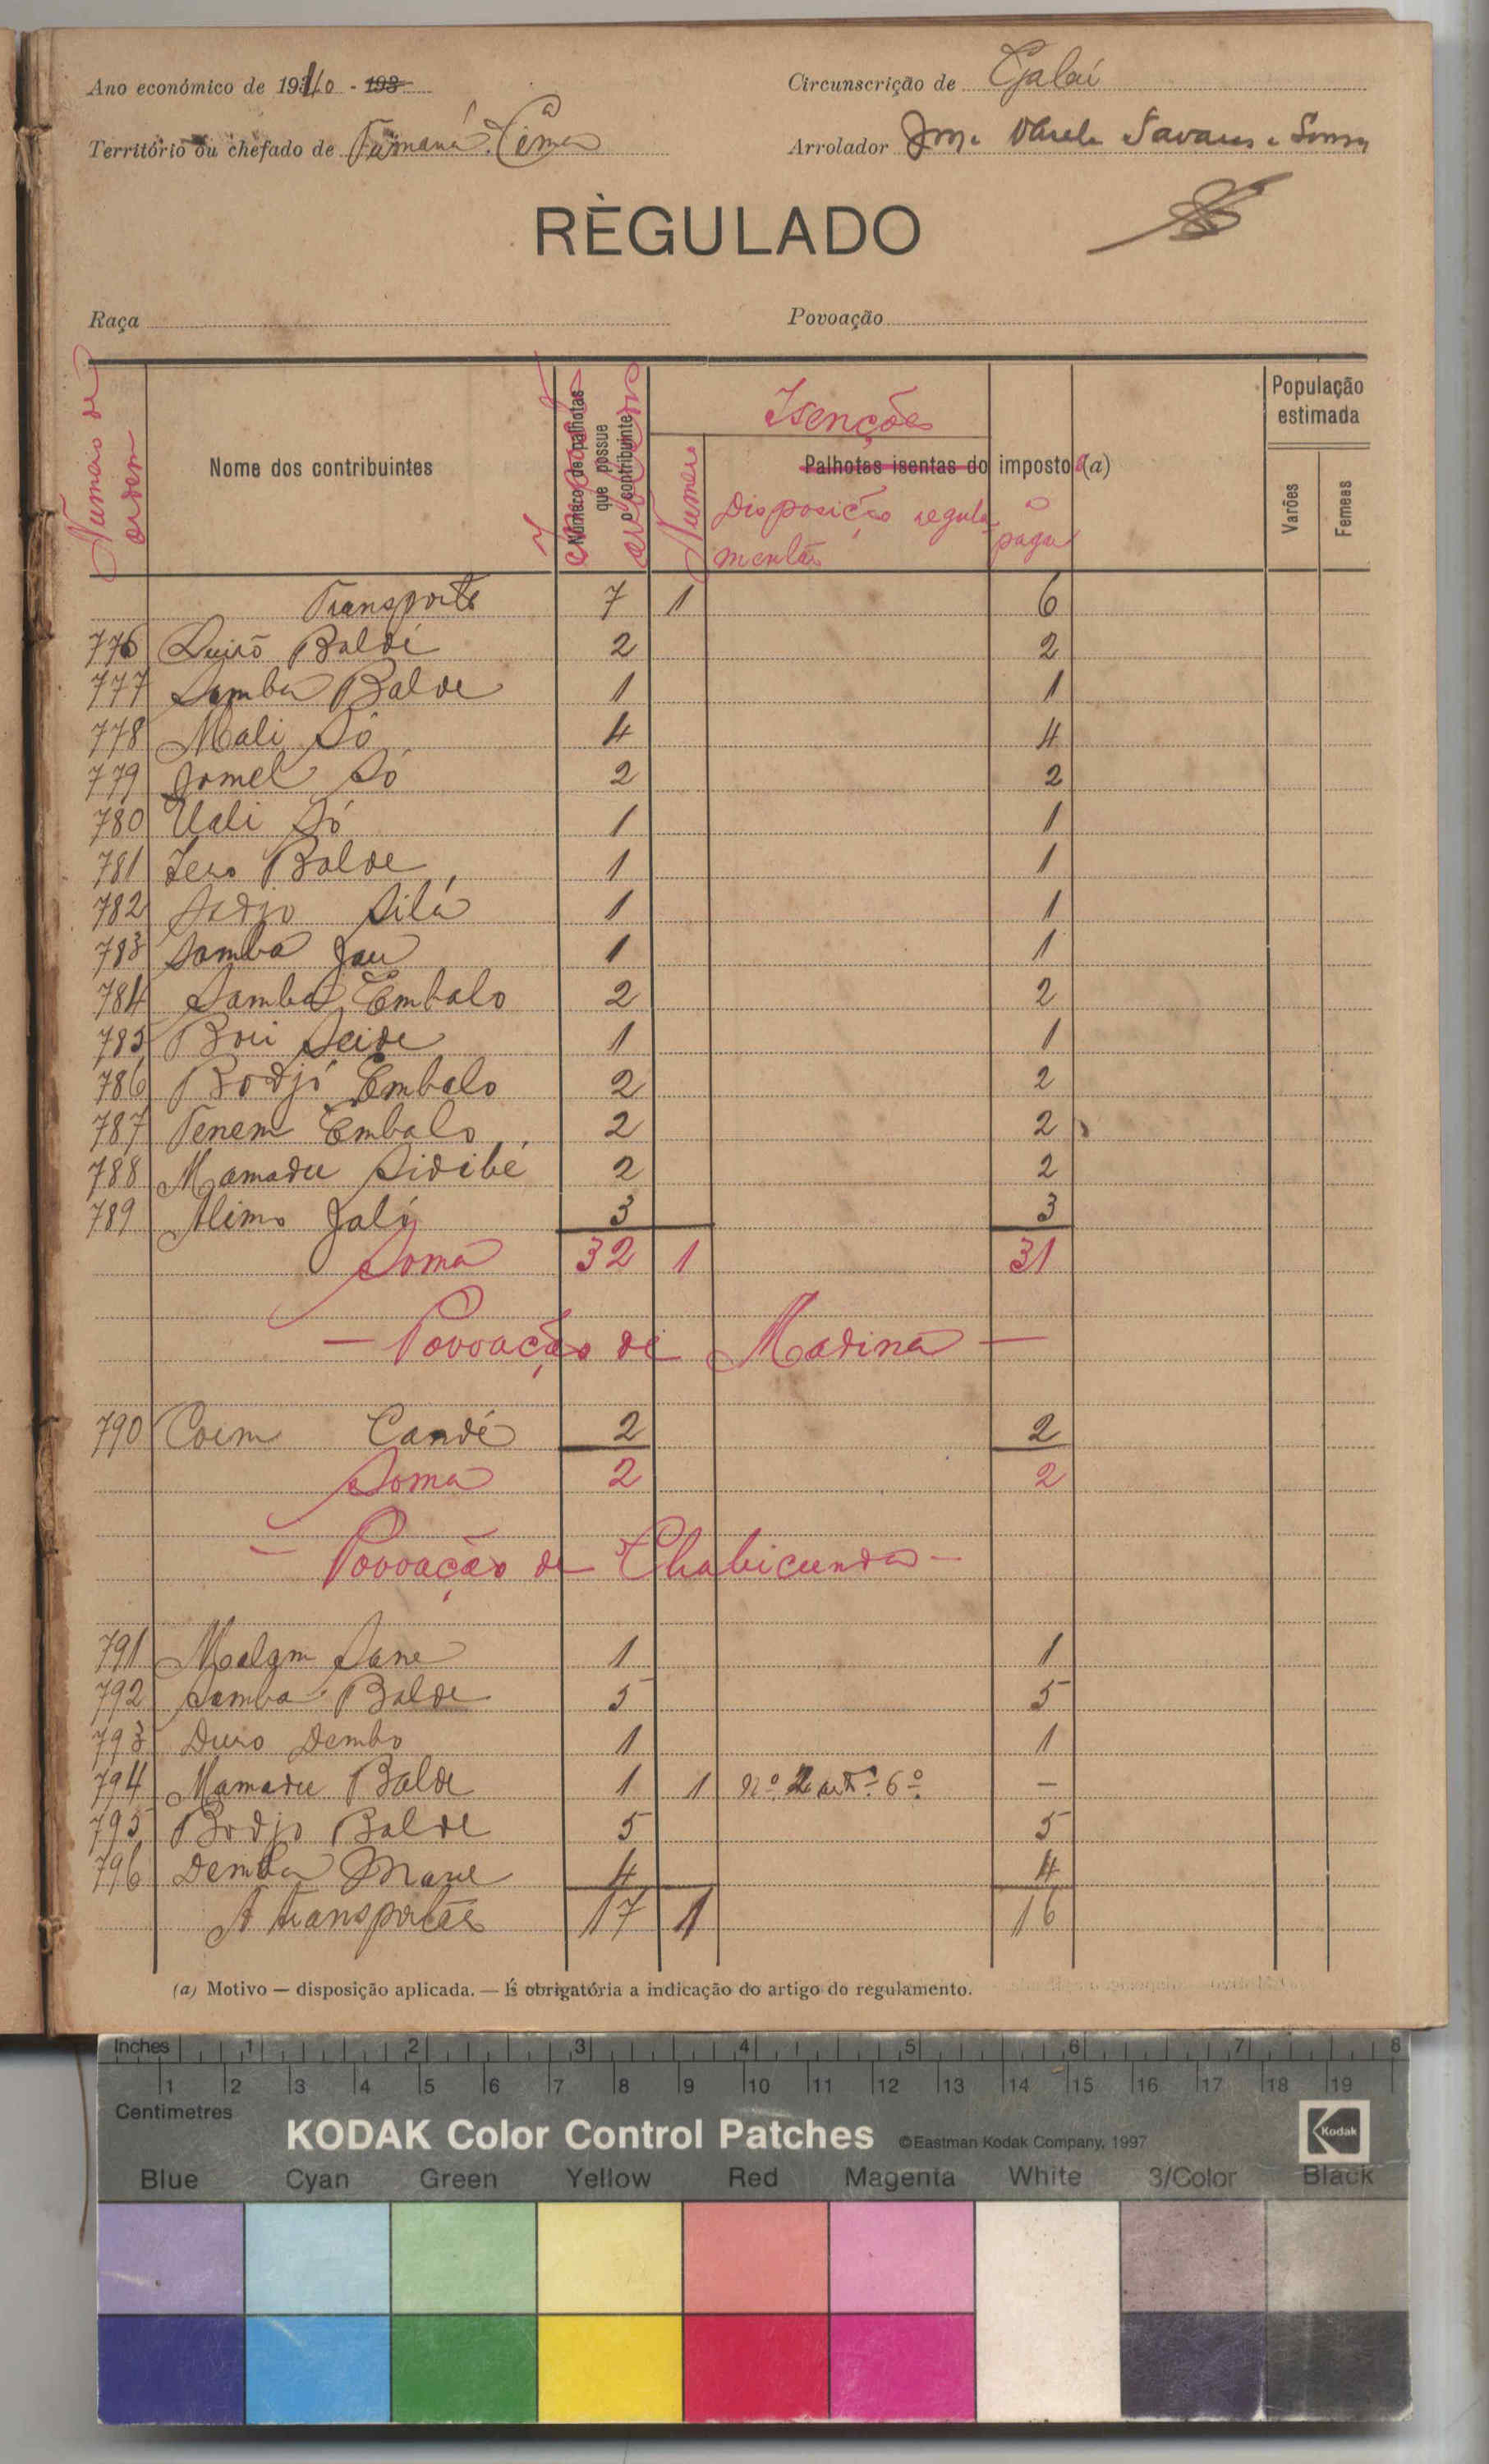 Ano económico de 1940 - 193
Circunscrição de
Território ou chefado de
Arrolador
RÈGULADO
Raça
Povoação
Numero de ordem
Nome dos contribuintes
Número de palhotas que possue o contribuinte
Isenções
Numero
Palhotas isentas do imposto (a)
Disposição regulamentar
a pagar
População estimada
Varões
Femeas
Transporte 7 1 6
776 Baldé 2 2
777 Samba Balde 1 1
778 Mali Só 4 4
779 Jomel Só 2 2
780 Uali Só 1 1
781 Balde 1 1
782 Sadjo Silá 1 1
783 Samba Jau 1 1
784 Samba Embalo 2 2
785 Seide 1 1
786 Bodjó Embalo 2 2
787 Tenem Embalo 2 2
788 Mamadu Sidibé 2 2
789 Alimo Jaló 3 3
Soma 32 1 31
— Povoação de Madina —
790 Candé 2 2
Soma 2 2
— Povoação de Chabicunda —
791 Malam Sane 1 1
792 Samba Balde 5 5
793 Duro Dembo 1 1
794 Mamadu Balde 1 1 nº 2 artº 6º —
795 Bodjo Balde 5 5
796 Demba Mane 4 4
A transportar 17 1 16
(a) Motivo — disposição aplicada. — É obrigatória a indicação do artigo do regulamento.
Inches 1 2 3 4 5 6 7 8
1 2 3 4 5 6 7 8 9 10 11 12 13 14 15 16 17 18 19
Centimetres
KODAK Color Control Patches ©Eastman Kodak Company, 1997 Kodak
Blue Cyan Green Yellow Red Magenta White 3/Color Black